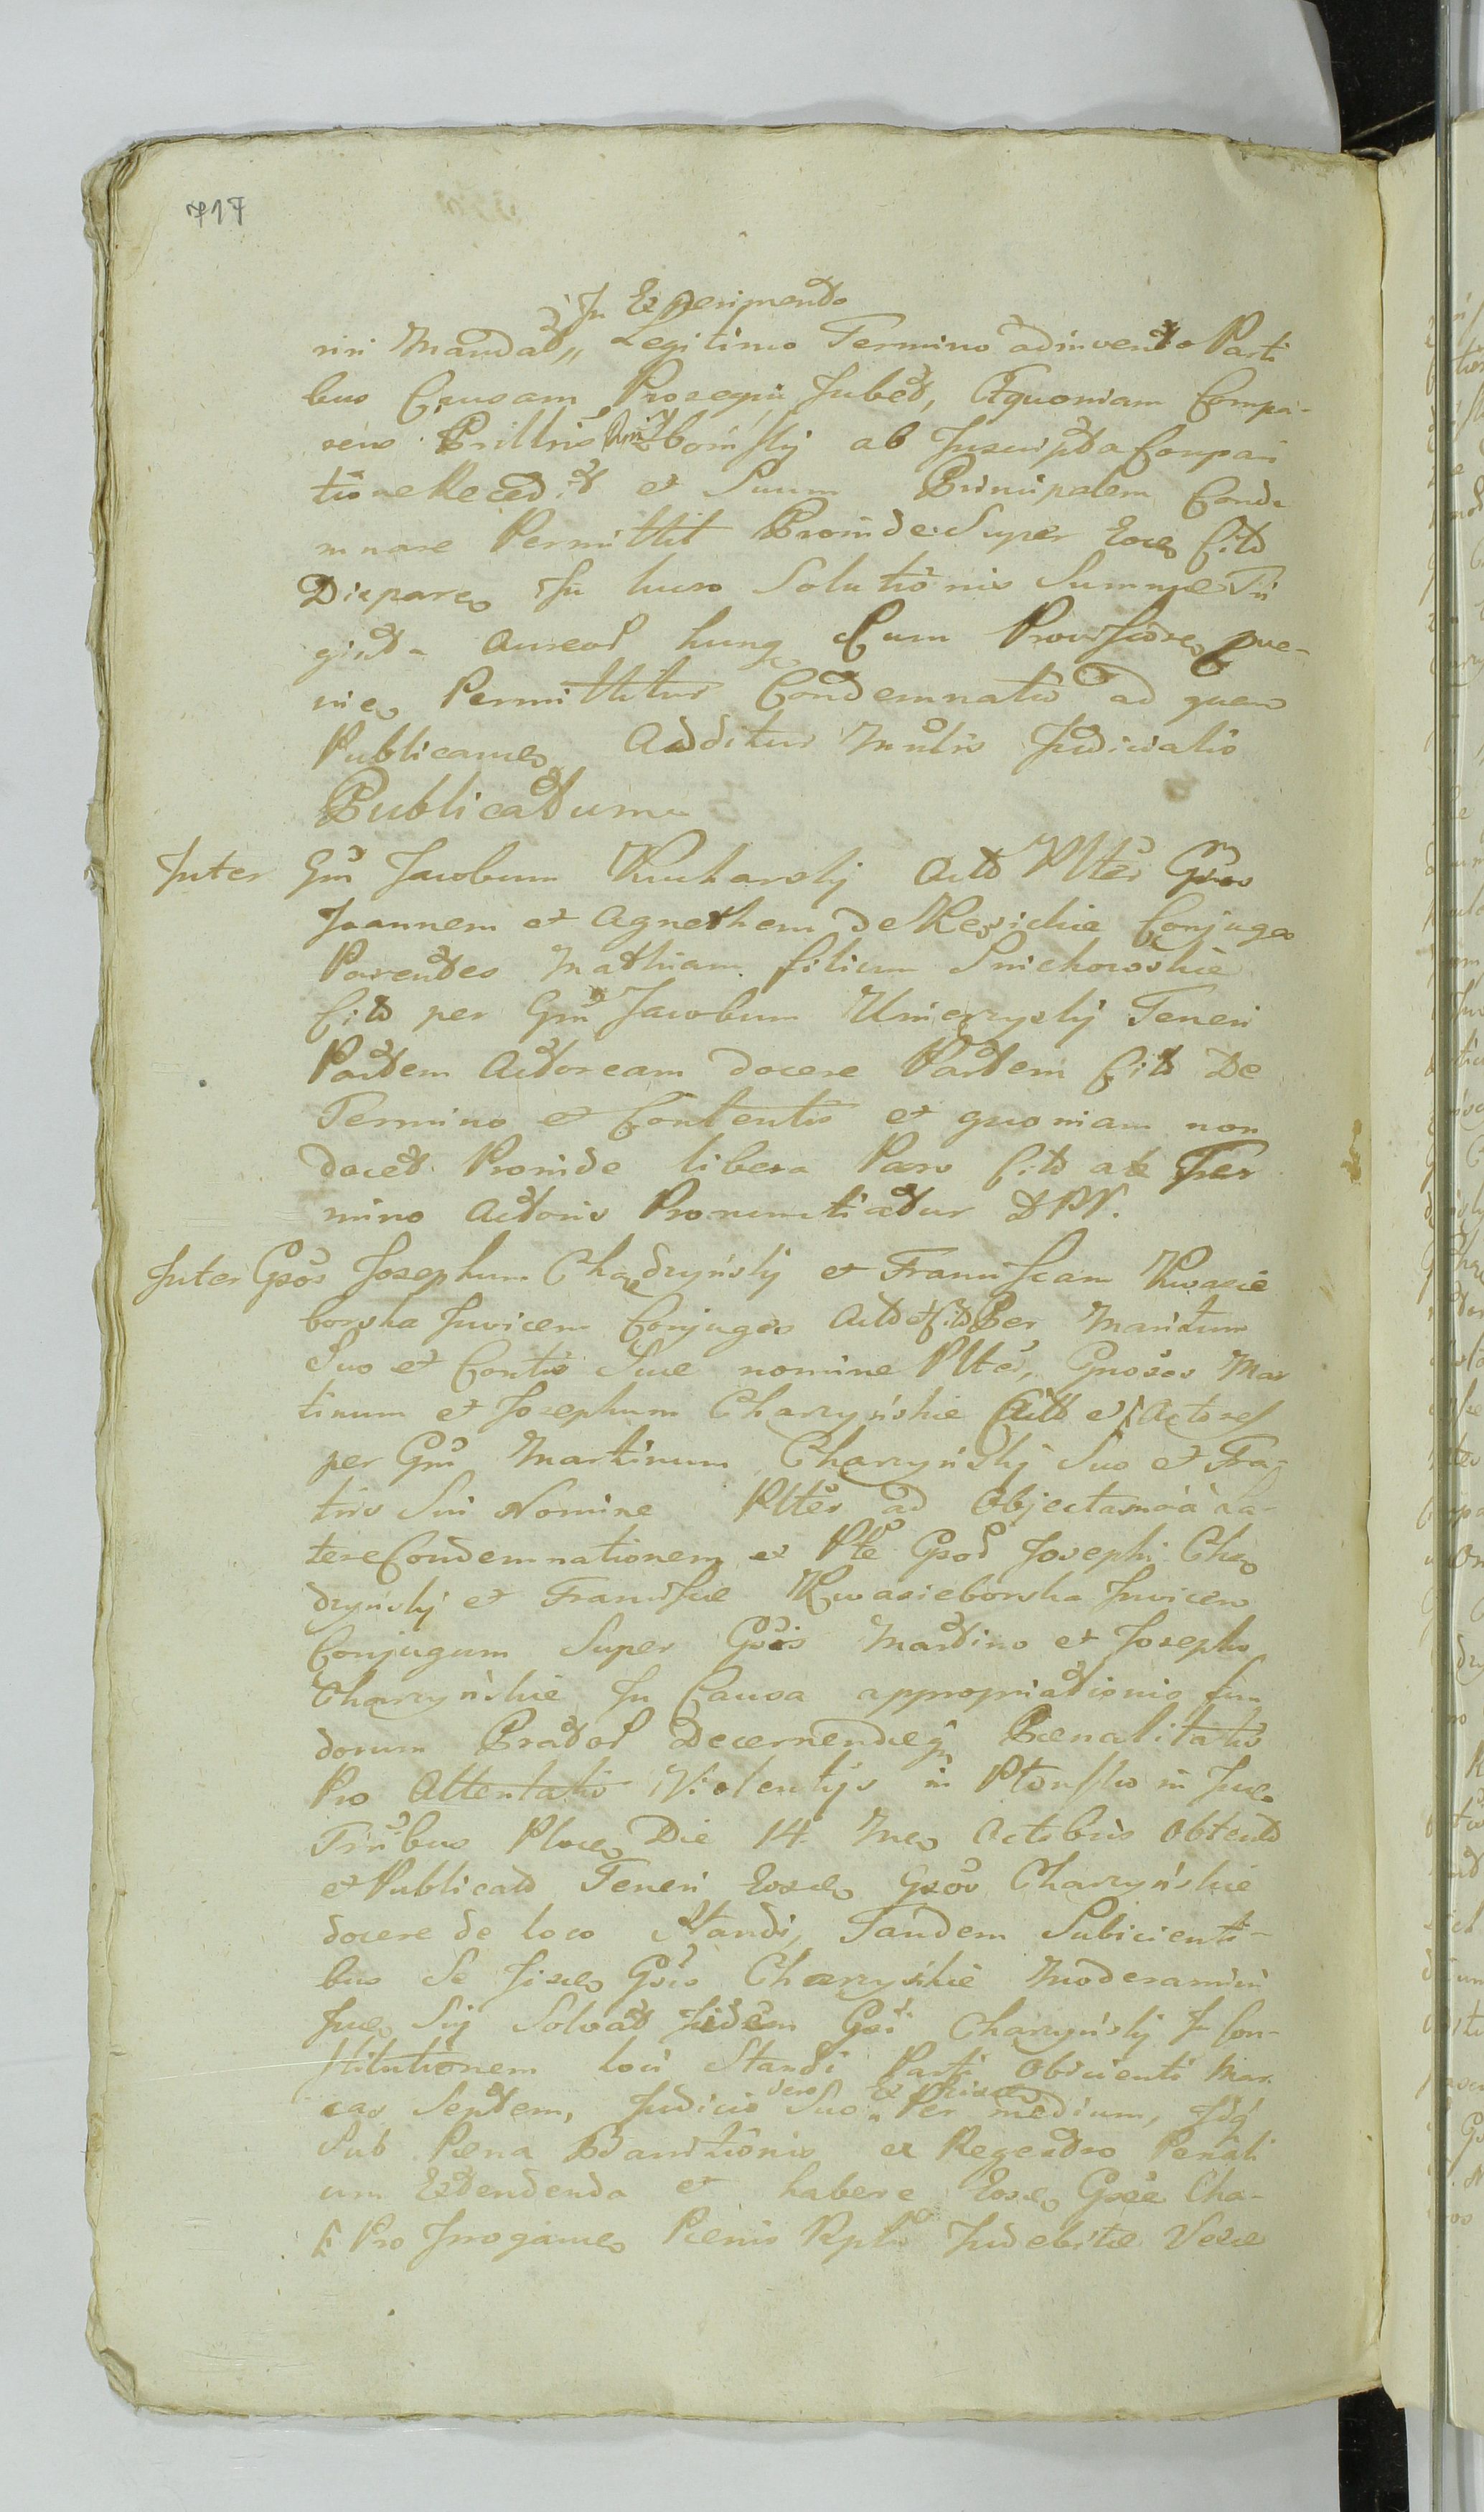 717
In Experimendo
niri Mandat,, Legitimo Termino adinvento Parti
bus Causam Prosequi Jubet, Et quoniam Compa-
rens ab Inscripta Compari
tione Recedit et Suum Principalem Conde
mnare Permittit Proinde Super Eoe Citt
Dispare In luero Solutionis Summae Tri
ginta Aureor hung Cum Provisione pve-
nie Permittitur Condemnatio ad quem
Publicame Additur Mnstris Judicialis
Publicatum
Inter Gm Jacobum Kucharsky Actt Plter Gsos
Joannem et Agnethem de Conjuges
Parentes Mathiam filium Snichowskie
Citt per Gm Jacobum Umierzysky Teneri
Partem Actoream docere Partem Citt De
Termino et Contentis et quoniam non
docet Proinde libera Pars Citt ab Ter
mino Actoris Pronunctiatur DPN.
Inter Gsos Josephum Chądzyńsky et Franciscam Kwasie
borska Invicem Conjuges Actt et Citt Per Maritum
Suo et Contis Suae nomine Plter, Gnosos Mar
tinum et Josephum Charzyńskie Citt et Actores
per Gm Martinum Charzyńsky Suo et Fra-
tris Sui Nomine Plter ad Objectam a La-
tere Condemnationem ex Pte Gsor Josephi Chą
dzyńsky et Franciscae Kwasieborska Invicem
Conjugum Super Gsis Martino et Josepho
Charzyńskie In Causa appropriationis fun
dorum Prator Decernendaeq Paenalitatis
Pro Attentatis Violentijs in Ptensko in Jue
Tribus Ploce Die 14 Me Octobris Obtent
et Publicato Teneri Eosde Gsos Charzyńskie
docere de loco Standi, Tandem Subicienti-
bus Se Iisde Gsis Charzyńskie Moderamini
Jue Sui Solvat Iidem Gsi Charzyńsky In Con-
stitutionem loci Standi Parti Obicienti Mar
cas Septem, Judicio vero Suo,, Per medium, Idq
Sub Paena Bannitionis ex Regestro Penali
um Extendenda et habere Eosde Gsos Cha-
Pro Irrogame Paenis Rplb Indebitae Vexae